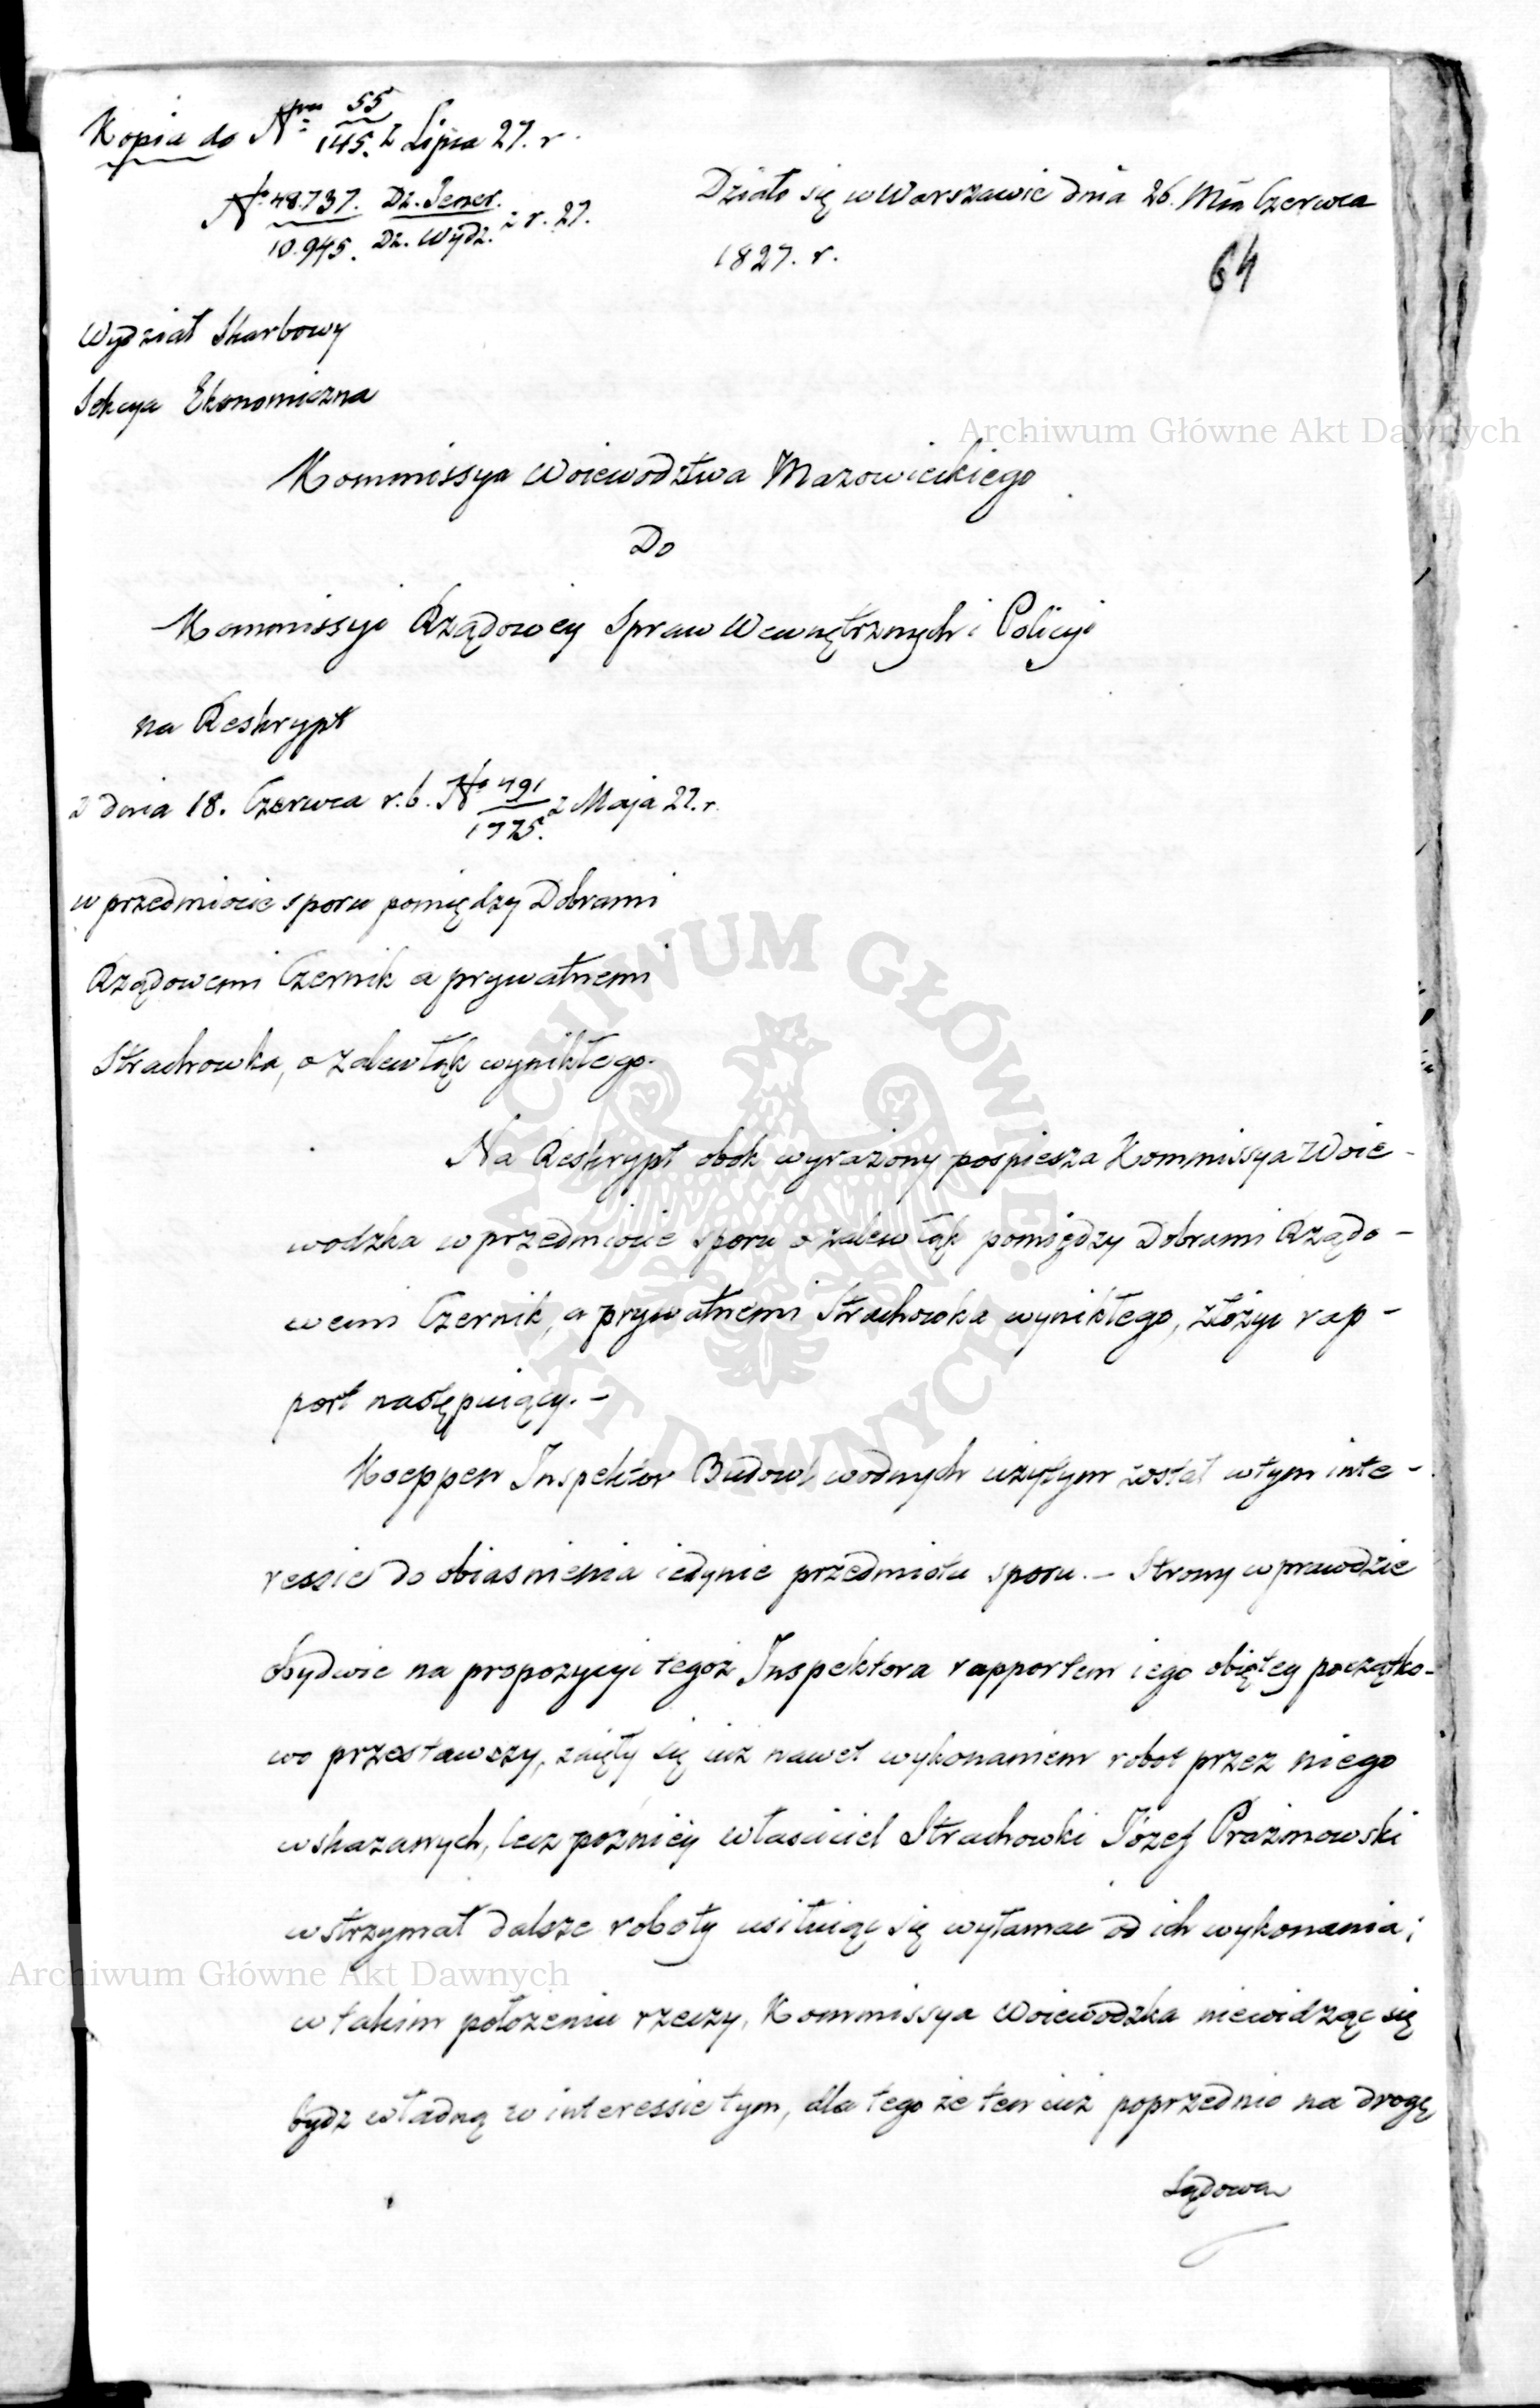 Kopia do Nru 55/145. z Lipca 27. r.
No 48.737. Dz. Jener. / 10.945. Dz. Wydz. z r. 27.
Działo się w Warszawie dnia 26. Mca Czerwca
1827. r.
64
Wydział Skarbowy
Sekcya Ekonomiczna
Archiwum Główne Akt Dawnych
Kommissya Woiewodztwa Mazowieckiego
Do
Kommissyi Rządowey Spraw Wewnętrznych i Policyi
na Reskrypt
z dnia 18. Czerwca r. b. No 491/1775. z Maja 27. r.
w przedmiocie sporu pomiędzy Dobrami
Rządowemi Czernik a prywatnemi
Strachowka, o zalew łąk wynikłego.
Na Reskrypt obok wyrażony pospiesza Kommissya Woie-
wodzka w przedmiocie sporu o zalew łąk pomiędzy Dobrami Rządo-
wemi Czernik, a prywatnemi Strachowka wynikłego, złożyc rap-
port następuiący. -
Koeppen Inspektor Budowl wodnych użytym został w tym inte-
ressie do obiasnienia iedynie przedmiotu sporu. - Strony wprawdzie
obydwie na propozycyi tegoż Inspektora rapportem iego obiętey początko-
wo przestawszy, zaięły się iuż nawet wykonaniem robot przez niego
wskazanych, lecz pozniey własciciel Strachowki Józef Prażmowski
wstrzymał dalsze roboty usiłuiąc się wyłamac od ich wykonania;
w takim położeniu rzeczy, Kommissya Woiewodzka niewidząc się
bydz władną w interessie tym, dla tego że ten iuż poprzednio na drogę
Sądowa
ARCHIWUM GŁÓWNE
AKT DAWNYCH
Archiwum Główne Akt Dawnych